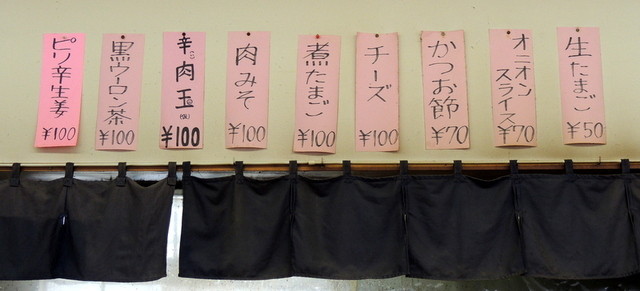 生たまご
¥50
オニオン
スライス
¥70
かつお節
¥70
チーズ
¥100
煮たまご
¥100
肉みそ
¥100
辛肉玉
¥100
黒ウーロン茶
¥100
ピリ辛生姜
¥100